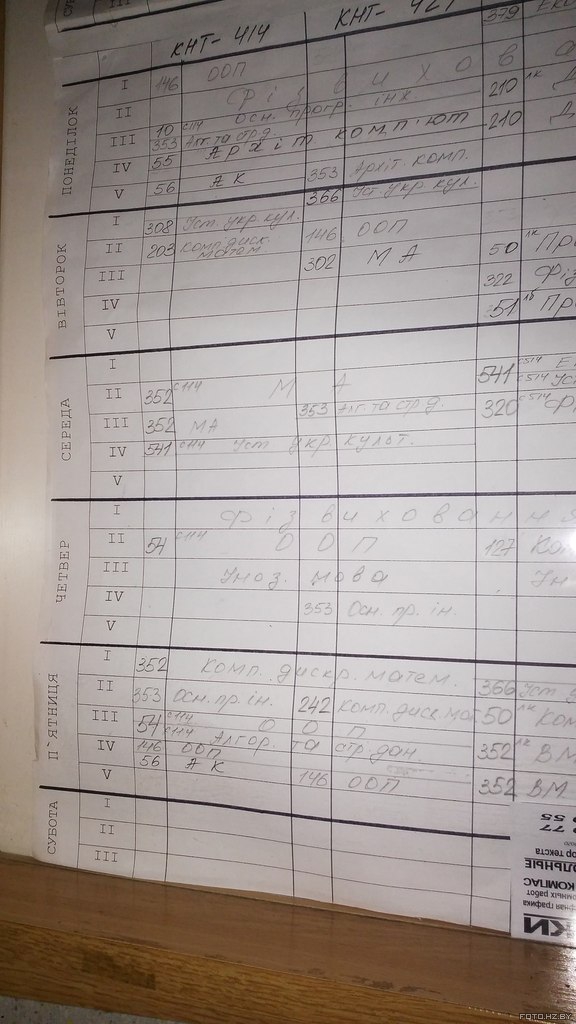 КНТ-414 КНТ-421 379
ПОНЕДІЛОК
I 146 ООП
Фізвихова
II Осн. прогр. інж 210 лк
III 10 с114
353 Алг. та стр д. 210
Архіт комп'ют
IV 55
353 Архіт. комп.
V 56 АК 366 Уст. укр. кул.
ВІВТОРОК
I 308 Уст. укр. кул. 146 ООП
II 203 комп. диск. матем. 302 МА 50 лк
III 322
IV 51 лб
V
СЕРЕДА
I 541 с514
II 352 с114 МА с514
353 Алг. та стр д. 320 с514
III 352 МА
IV 541 с114 Уст укр культ.
V
ЧЕТВЕР
I Фізвиховання
II 54 с114 ООП 127
III Іноз. мова
IV 353 Осн. пр. ін.
V
П`ЯТНИЦЯ
I 352 Комп. дискр. матем. 366 Уст
II 353 Осн. пр. ін. 242 комп. диск. мат 50 лк
III 54 с114 ООП
с114 Алгор. та стр. дан. 352 лк ВМ
IV 146 ООП
V 56 АК 146 ООП 352 ВМ
СУБОТА
I
II
III
FOTO.HZ.BY